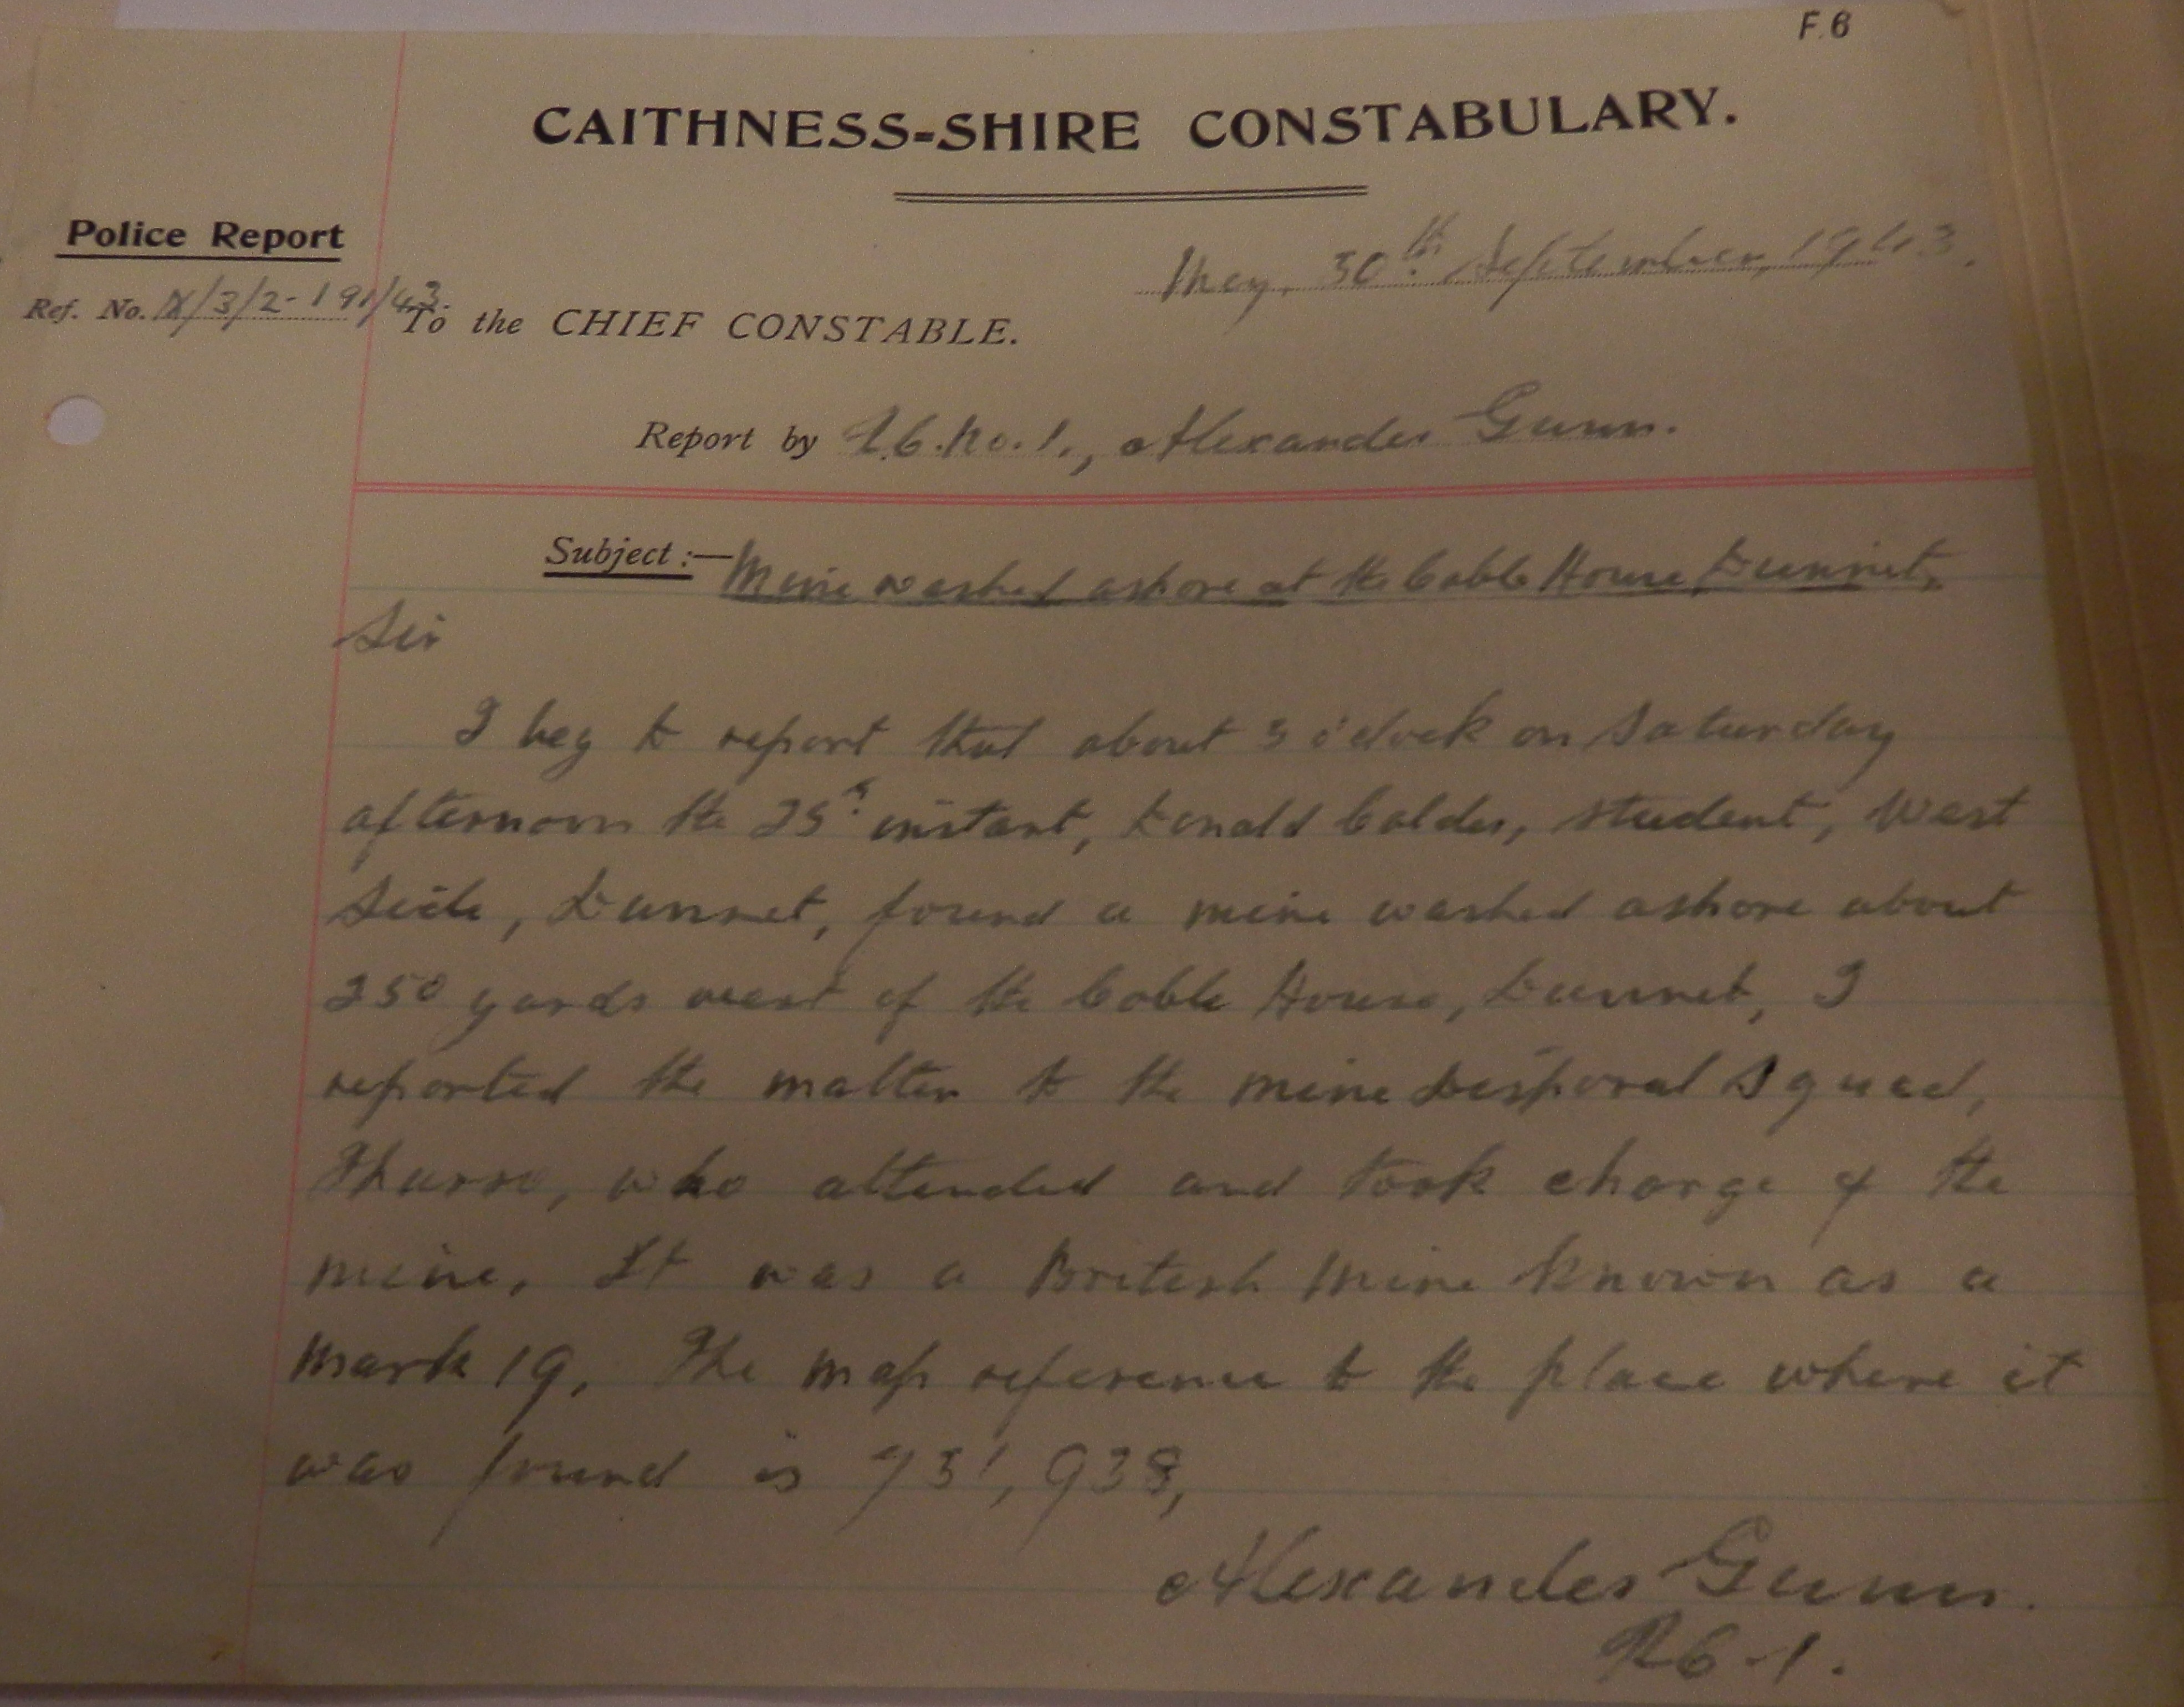 F. 6
CAITHNESS-SHIRE CONSTABULARY.
Police Report
Mey, 30th September, 1943.
Ref. No. X/3/2-191/43.
To the CHIEF CONSTABLE.
Report by P.C. No. 1., Alexander Gunn.
Subject :— Mine washed ashore at the Coble House Dunnet,
Sir
I beg to report that about 3 o'clock on Saturday
afternoon the 25th instant, Donald Calder, student, West
Side, Dunnet, found a mine washed ashore about
250 yards west of the Coble House, Dunnet, I
reported the matter to the mine Disposal Squad,
Thurso, who attended and took charge of the
mine. It was a British Mine known as a
Mark 19. The map reference to the place where it
was found is 731, 938,
Alexander Gunn.
P.C-1.